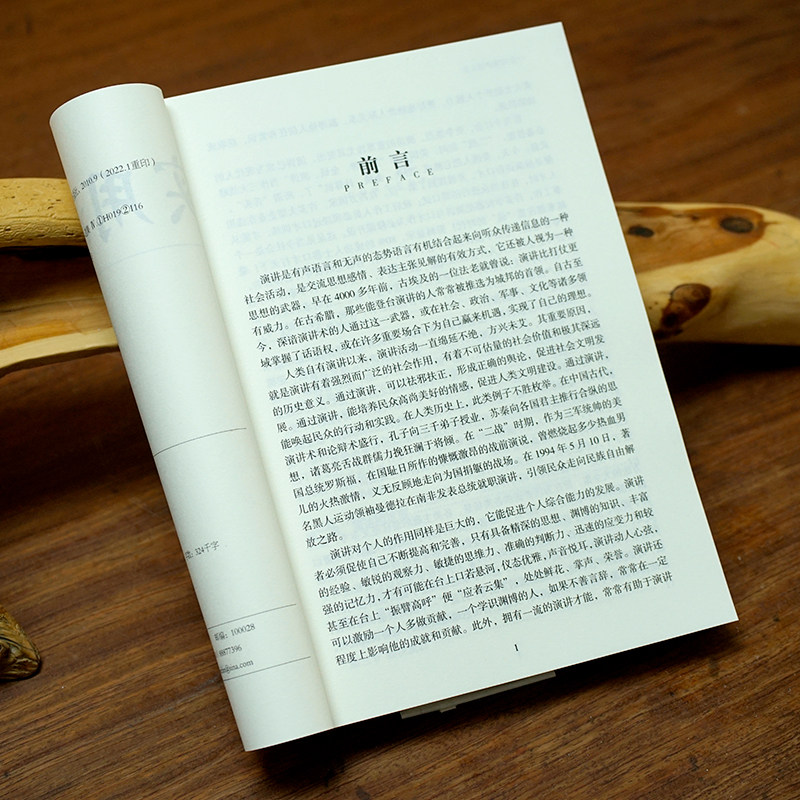 2010.9（2022.1重印）
H019②I16
324千字
邮编：100028
前言
PREFACE
演讲是有声语言和无声的态势语言有机结合起来向听众传递信息的一种
社会活动，是交流思想感情、表达主张见解的有效方式，它还被人视为一种
思想的武器，早在 4000 多年前，古埃及的一位法老就曾说：演讲比打仗更
有威力。在古希腊，那些能登台演讲的人常常被推选为城邦的首领。自古至
今，深谙演讲术的人通过这一武器，或在社会、政治、军事、文化等诸多领
域掌握了话语权，或在许多重要场合下为自己赢来机遇，实现了自己的理想。
人类自有演讲以来，演讲活动一直绵延不绝，方兴未艾。其重要原因，
就是演讲有着强烈而广泛的社会作用，有着不可估量的社会价值和极其深远
的历史意义。通过演讲，可以祛邪扶正，形成正确的舆论，促进社会文明发
展。通过演讲，能培养民众高尚美好的情感，促进人类文明建设。通过演讲，
能唤起民众的行动和实践。在人类历史上，此类例子不胜枚举。在中国古代，
演讲术和论辩术盛行，孔子向三千弟子授业，苏秦向各国君主推行合纵的思
想，诸葛亮舌战群儒力挽狂澜于将倾。在“二战”时期，作为三军统帅的美
国总统罗斯福，在国耻日所作的慷慨激昂的战前演说，曾燃烧起多少热血男
儿的火热激情，义无反顾地走向为国捐躯的战场。在 1994 年 5 月 10 日，著
名黑人运动领袖曼德拉在南非发表总统就职演讲，引领民众走向民族自由解
放之路。
演讲对个人的作用同样是巨大的，它能促进个人综合能力的发展。演讲
者必须促使自己不断提高和完善，只有具备精深的思想、渊博的知识、丰富
的经验、敏锐的观察力、敏捷的思维力、准确的判断力、迅速的应变力和较
强的记忆力，才有可能在台上口若悬河，仪态优雅，声音悦耳，演讲动人心弦，
甚至在台上“振臂高呼”便“应者云集”，处处鲜花、掌声、荣誉。演讲还
可以激励一个人多做贡献，一个学识渊博的人，如果不善言辞，常常在一定
程度上影响他的成就和贡献。此外，拥有一流的演讲才能，常常有助于演讲
1